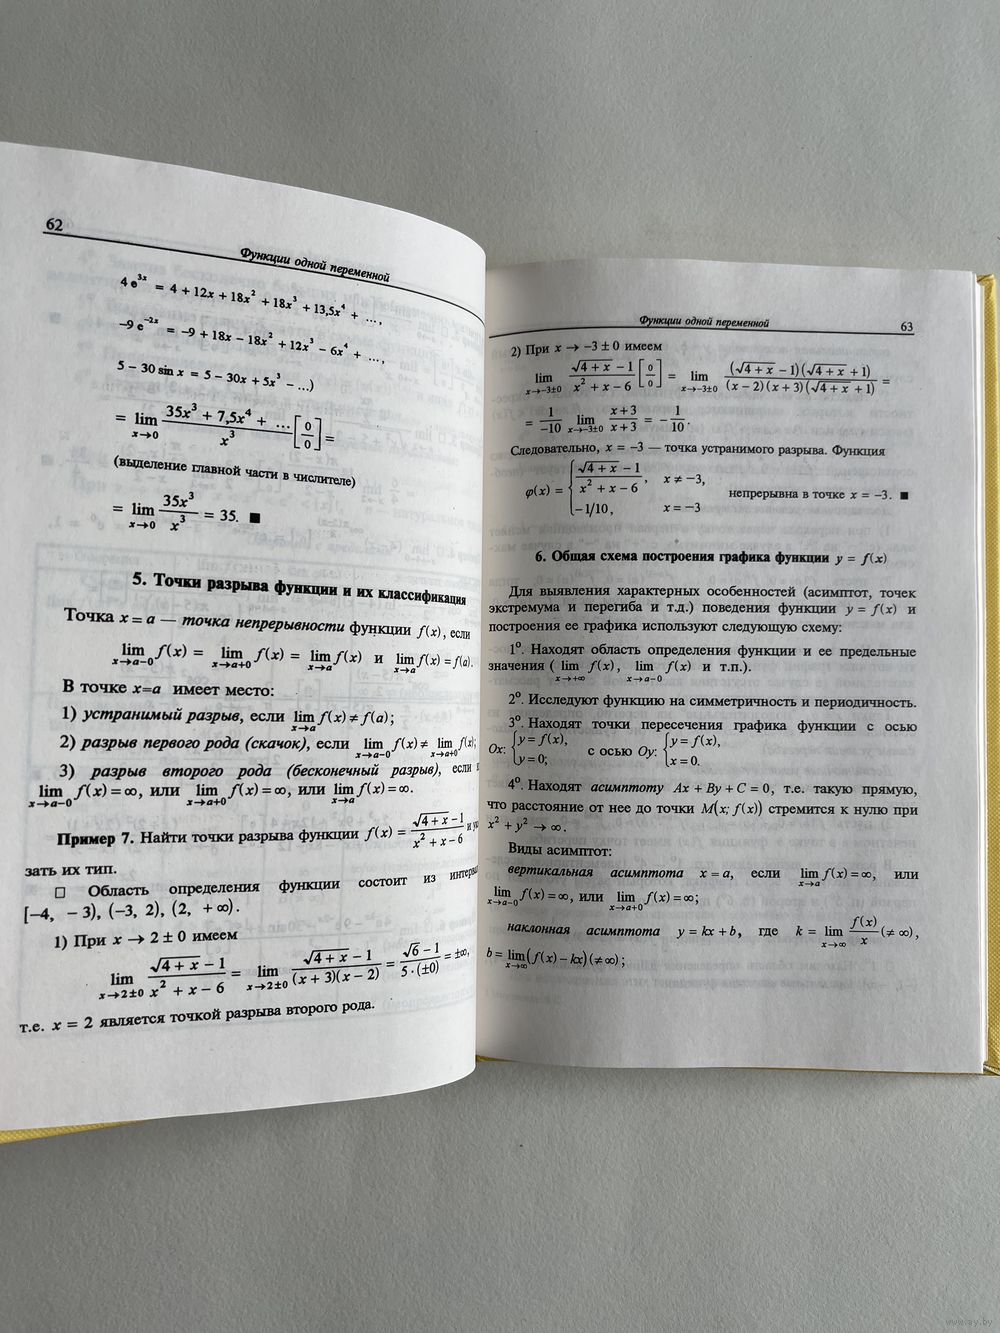 62
Функции одной переменной
4 e^{3x} = 4 + 12x + 18x² + 18x³ + 13,5x⁴ + …,
–9 e^{–2x} = –9 + 18x – 18x² + 12x³ – 6x⁴ + …,
5 – 30 sin x = 5 – 30x + 5x³ – …)
= lim_{x→0} (35x³ + 7,5x⁴ + …)/x³ [0/0] =
(выделение главной части в числителе)
= lim_{x→0} 35x³/x³ = 35. ■
5. Точки разрыва функции и их классификация
Точка x = a — точка непрерывности функции f(x), если
lim_{x→a–0} f(x) = lim_{x→a+0} f(x) = lim_{x→a} f(x) и lim_{x→a} f(x) = f(a).
В точке x=a имеет место:
1) устранимый разрыв, если lim_{x→a} f(x) ≠ f(a);
2) разрыв первого рода (скачок), если lim_{x→a–0} f(x) ≠ lim_{x→a+0} f(x);
3) разрыв второго рода (бесконечный разрыв), если
lim_{x→a–0} f(x) = ∞, или lim_{x→a+0} f(x) = ∞, или lim_{x→a} f(x) = ∞.
Пример 7. Найти точки разрыва функции f(x) = (√(4 + x) – 1)/(x² + x – 6) и
зать их тип.
□ Область определения функции состоит из интерва
[–4, – 3), (–3, 2), (2, + ∞).
1) При x → 2 ± 0 имеем
lim_{x→2±0} (√(4 + x) – 1)/(x² + x – 6) = lim_{x→2±0} (√(4 + x) – 1)/((x + 3)(x – 2)) = (√6 – 1)/(5 · (±0)) = ±∞,
т.е. x = 2 является точкой разрыва второго рода.
Функции одной переменной
63
2) При x → –3 ± 0 имеем
lim_{x→–3±0} (√(4 + x) – 1)/(x² + x – 6) [0/0] = lim_{x→–3±0} ((√(4 + x) – 1)(√(4 + x) + 1))/((x – 2)(x + 3)(√(4 + x) + 1)) =
= 1/–10 lim_{x→–3±0} (x + 3)/(x + 3) = – 1/10.
Следовательно, x = –3 — точка устранимого разрыва. Функция
φ(x) = { (√(4 + x) – 1)/(x² + x – 6), x ≠ –3,
–1/10, x = –3
непрерывна в точке x = –3. ■
6. Общая схема построения графика функции y = f(x)
Для выявления характерных особенностей (асимптот, точек
экстремума и перегиба и т.д.) поведения функции y = f(x) и
построения ее графика используют следующую схему:
1⁰. Находят область определения функции и ее предельные
значения ( lim_{x→+∞} f(x), lim_{x→a–0} f(x) и т.п.).
2⁰. Исследуют функцию на симметричность и периодичность.
3⁰. Находят точки пересечения графика функции с осью
Ox: { y = f(x), y = 0; с осью Oy: { y = f(x), x = 0.
4⁰. Находят асимптоту Ax + By + C = 0, т.е. такую прямую,
что расстояние от нее до точки M(x; f(x)) стремится к нулю при
x² + y² → ∞.
Виды асимптот:
вертикальная асимптота x = a, если lim_{x→a} f(x) = ∞, или
lim_{x→a–0} f(x) = ∞, или lim_{x→a+0} f(x) = ∞;
наклонная асимптота y = kx + b, где k = lim_{x→∞} f(x)/x (≠ ∞),
b = lim_{x→∞} (f(x) – kx) (≠ ∞);
www.ay.by